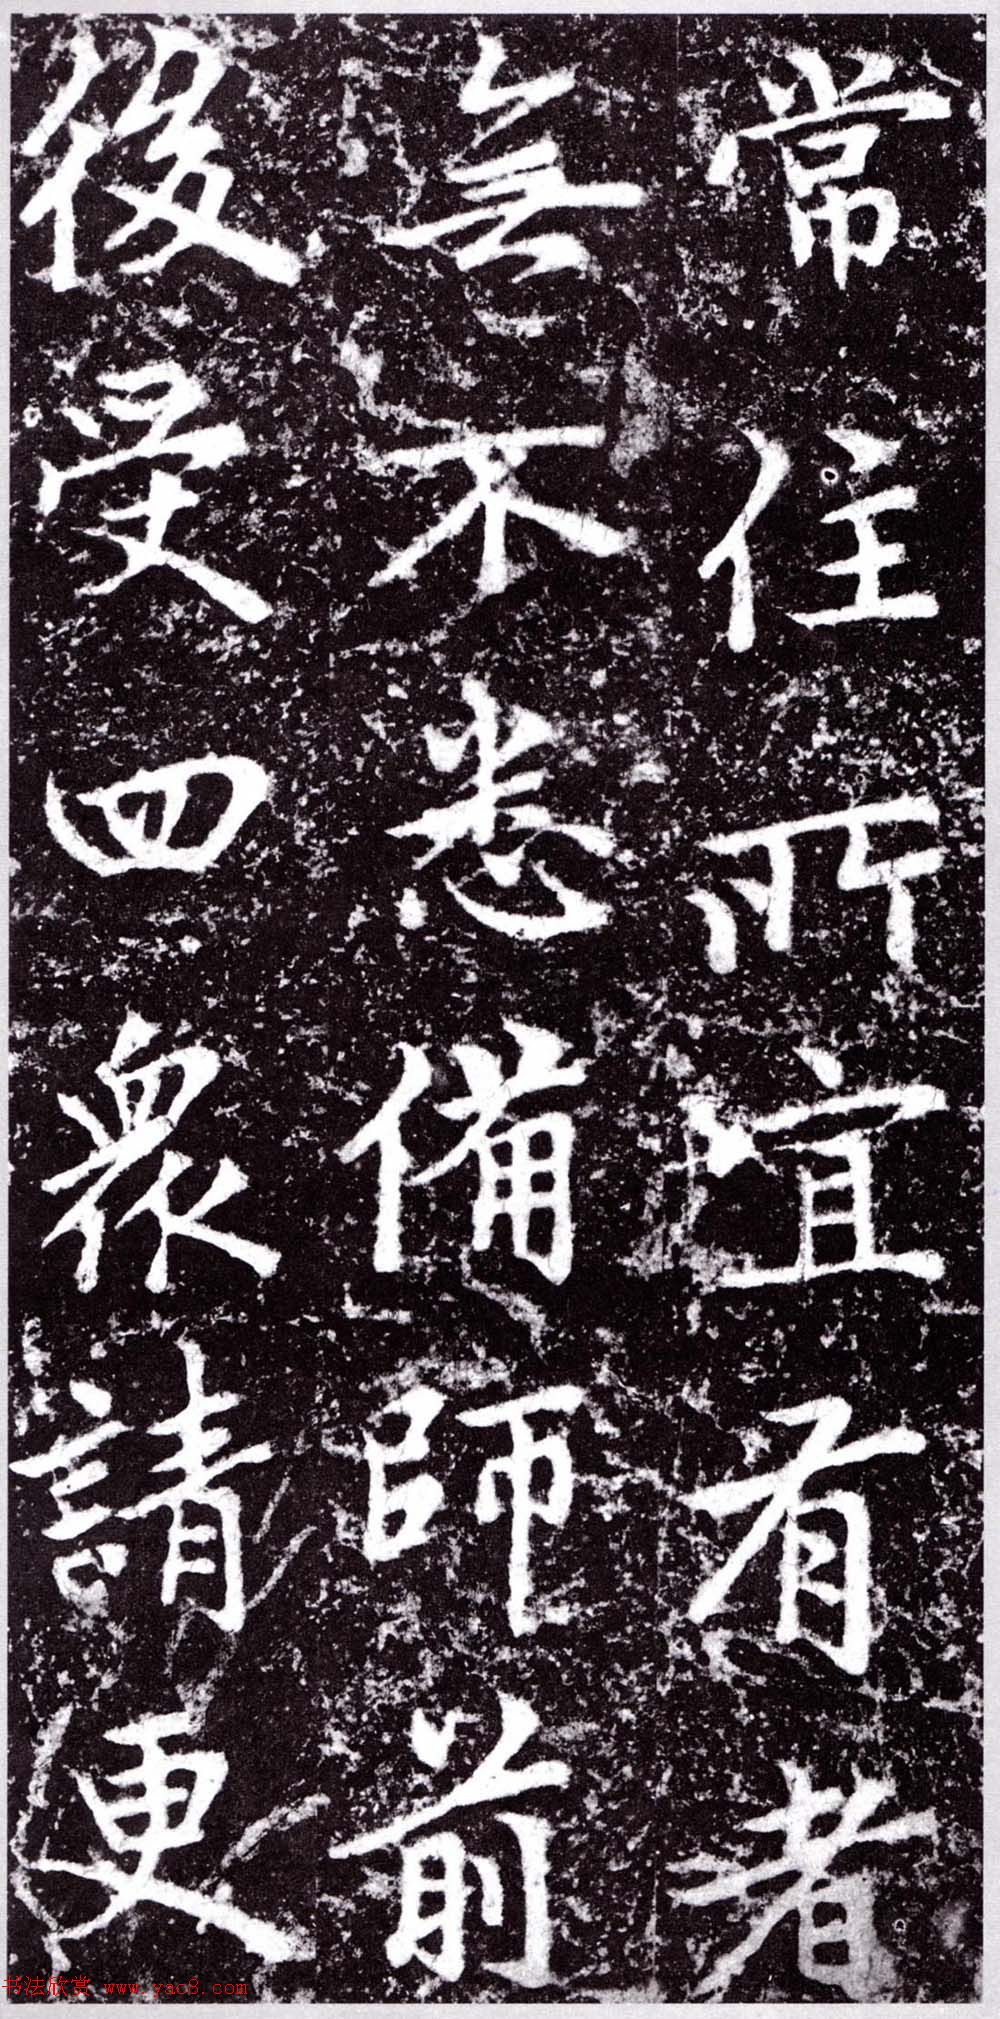 常住所宜有者
無不悉備師前
後受四衆請更
书法欣赏 www.yac8.com